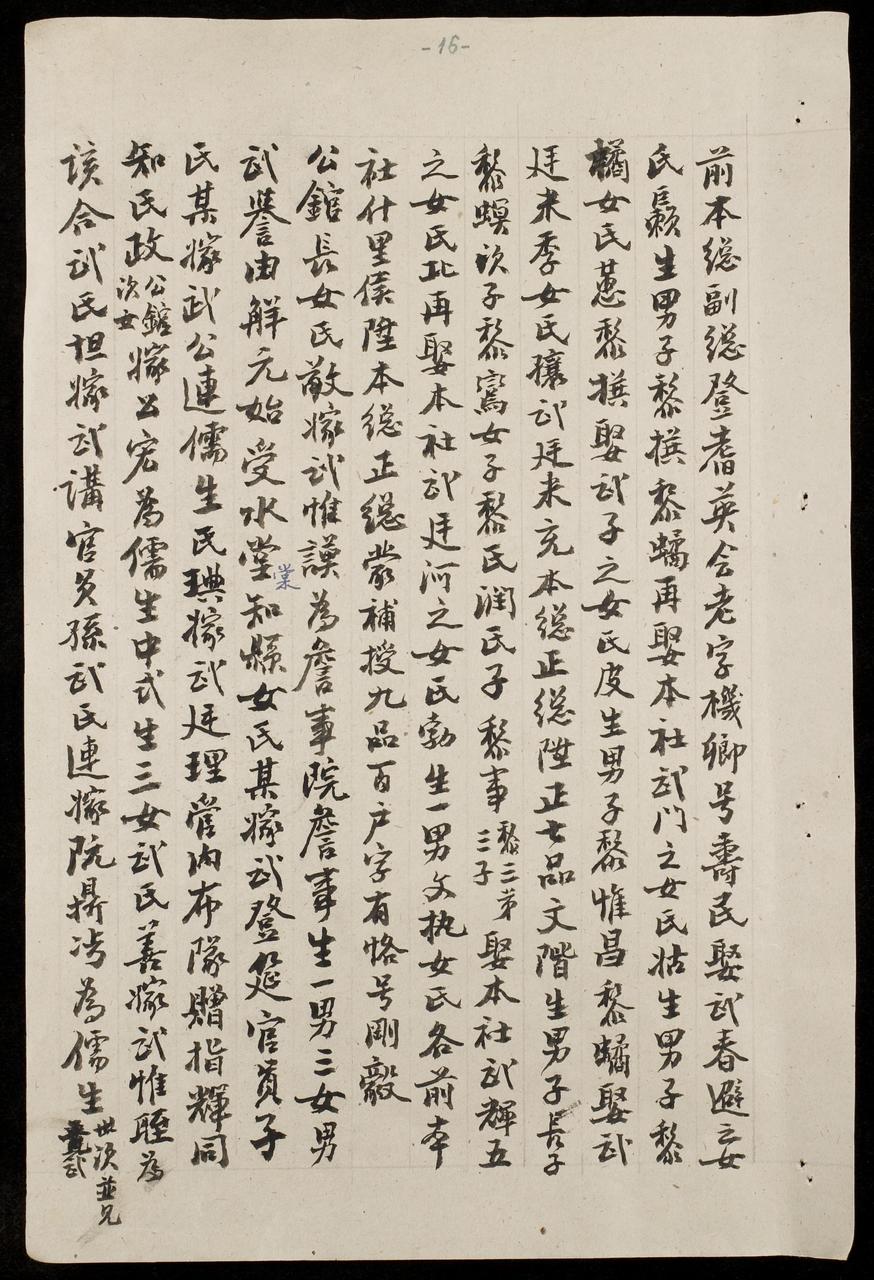 -16-
前本総副総登耆英会老字機卿号壽民娶武春避之女
氏籁生男子黎撰黎蟠再娶本社武门之女氏姑生男子黎
橘女氏蕙黎撰娶武子之女氏皮生男子黎惟昌黎蟠娶武
廷来季女氏穰武廷来充本総正総陞正七品文階生男子長子
黎螟次子黎窩女子黎氏润氏子黎事黎三弟三子娶本社武輝五
之女氏北再娶本社武廷河之女氏勃生一男文执女氏各前本
社什里侯陞本総正総蒙補授九品百户字有恪号剛毅
公舘長女氏敵嫁武惟謨為詹事院詹事生一男三女男
武誉由解元始受水堂棠知縣女氏某嫁武登筵官貟子
氏某嫁武公連儒生氏琠嫁武廷理管内布隊贈指輝同
知民政公舘次女嫁公宏為儒生中式生三女武氏善嫁武惟臸為
該合武氏坦嫁武講官員孫武氏連嫁阮為儒生世次並見武